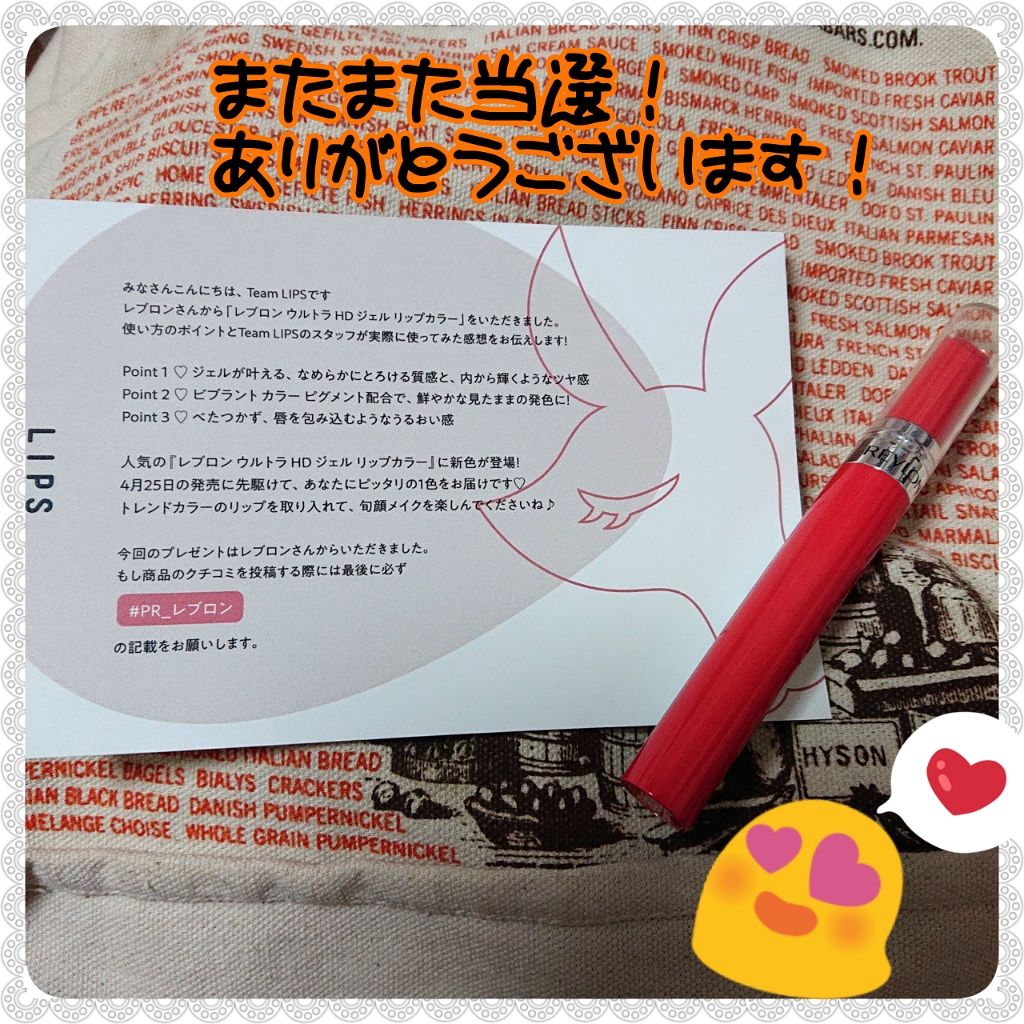 またまた当選！
ありがとうございます！
みなさんこんにちは、Team LIPSです
レブロンさんから「レブロン ウルトラ HD ジェル リップカラー」をいただきました。
使い方のポイントとTeam LIPSのスタッフが実際に使ってみた感想をお伝えします!
Point 1 ♡ ジェルが叶える、なめらかにとろける質感と、内から輝くようなツヤ感
Point 2 ♡ ビブラント カラー ピグメント配合で、鮮やかな見たままの発色に!
Point 3 ♡ べたつかず、唇を包み込むようなうるおい感
人気の『レブロン ウルトラ HD ジェル リップカラー』に新色が登場!
4月25日の発売に先駆けて、あなたにピッタリの1色をお届けです♡
トレンドカラーのリップを取り入れて、旬顔メイクを楽しんでくださいね♪
今回のプレゼントはレブロンさんからいただきました。
もし商品のクチコミを投稿する際には最後に必ず
#PR_レブロン
の記載をお願いします。
LIPS
REVLON
BARS.COM.
ITALIAN BREAD STICKS FINN CRISP BREAD SMOKED BROOK TROUT
CREAM SAUCE SMOKED WHITE FISH IMPORTED FRESH CAVIAR
SMOKED CARP SMOKED SCOTTISH SALMON
BISMARCK HERRING
DANISH BLEU
ROMANO CAPRICE DES DIEUX ITALIAN PARMESAN
SMOKED BROOK TROUT
IMPORTED FRESH CAVIAR
SMOKED SCOTTISH SALMON
FRESH SALMON
HYSON
ITALIAN BREAD
PERNICKEL BAGELS BIALYS CRACKERS
IAN BLACK BREAD DANISH PUMPERNICKEL
MELANGE CHOISE WHOLE GRAIN PUMPERNICKEL